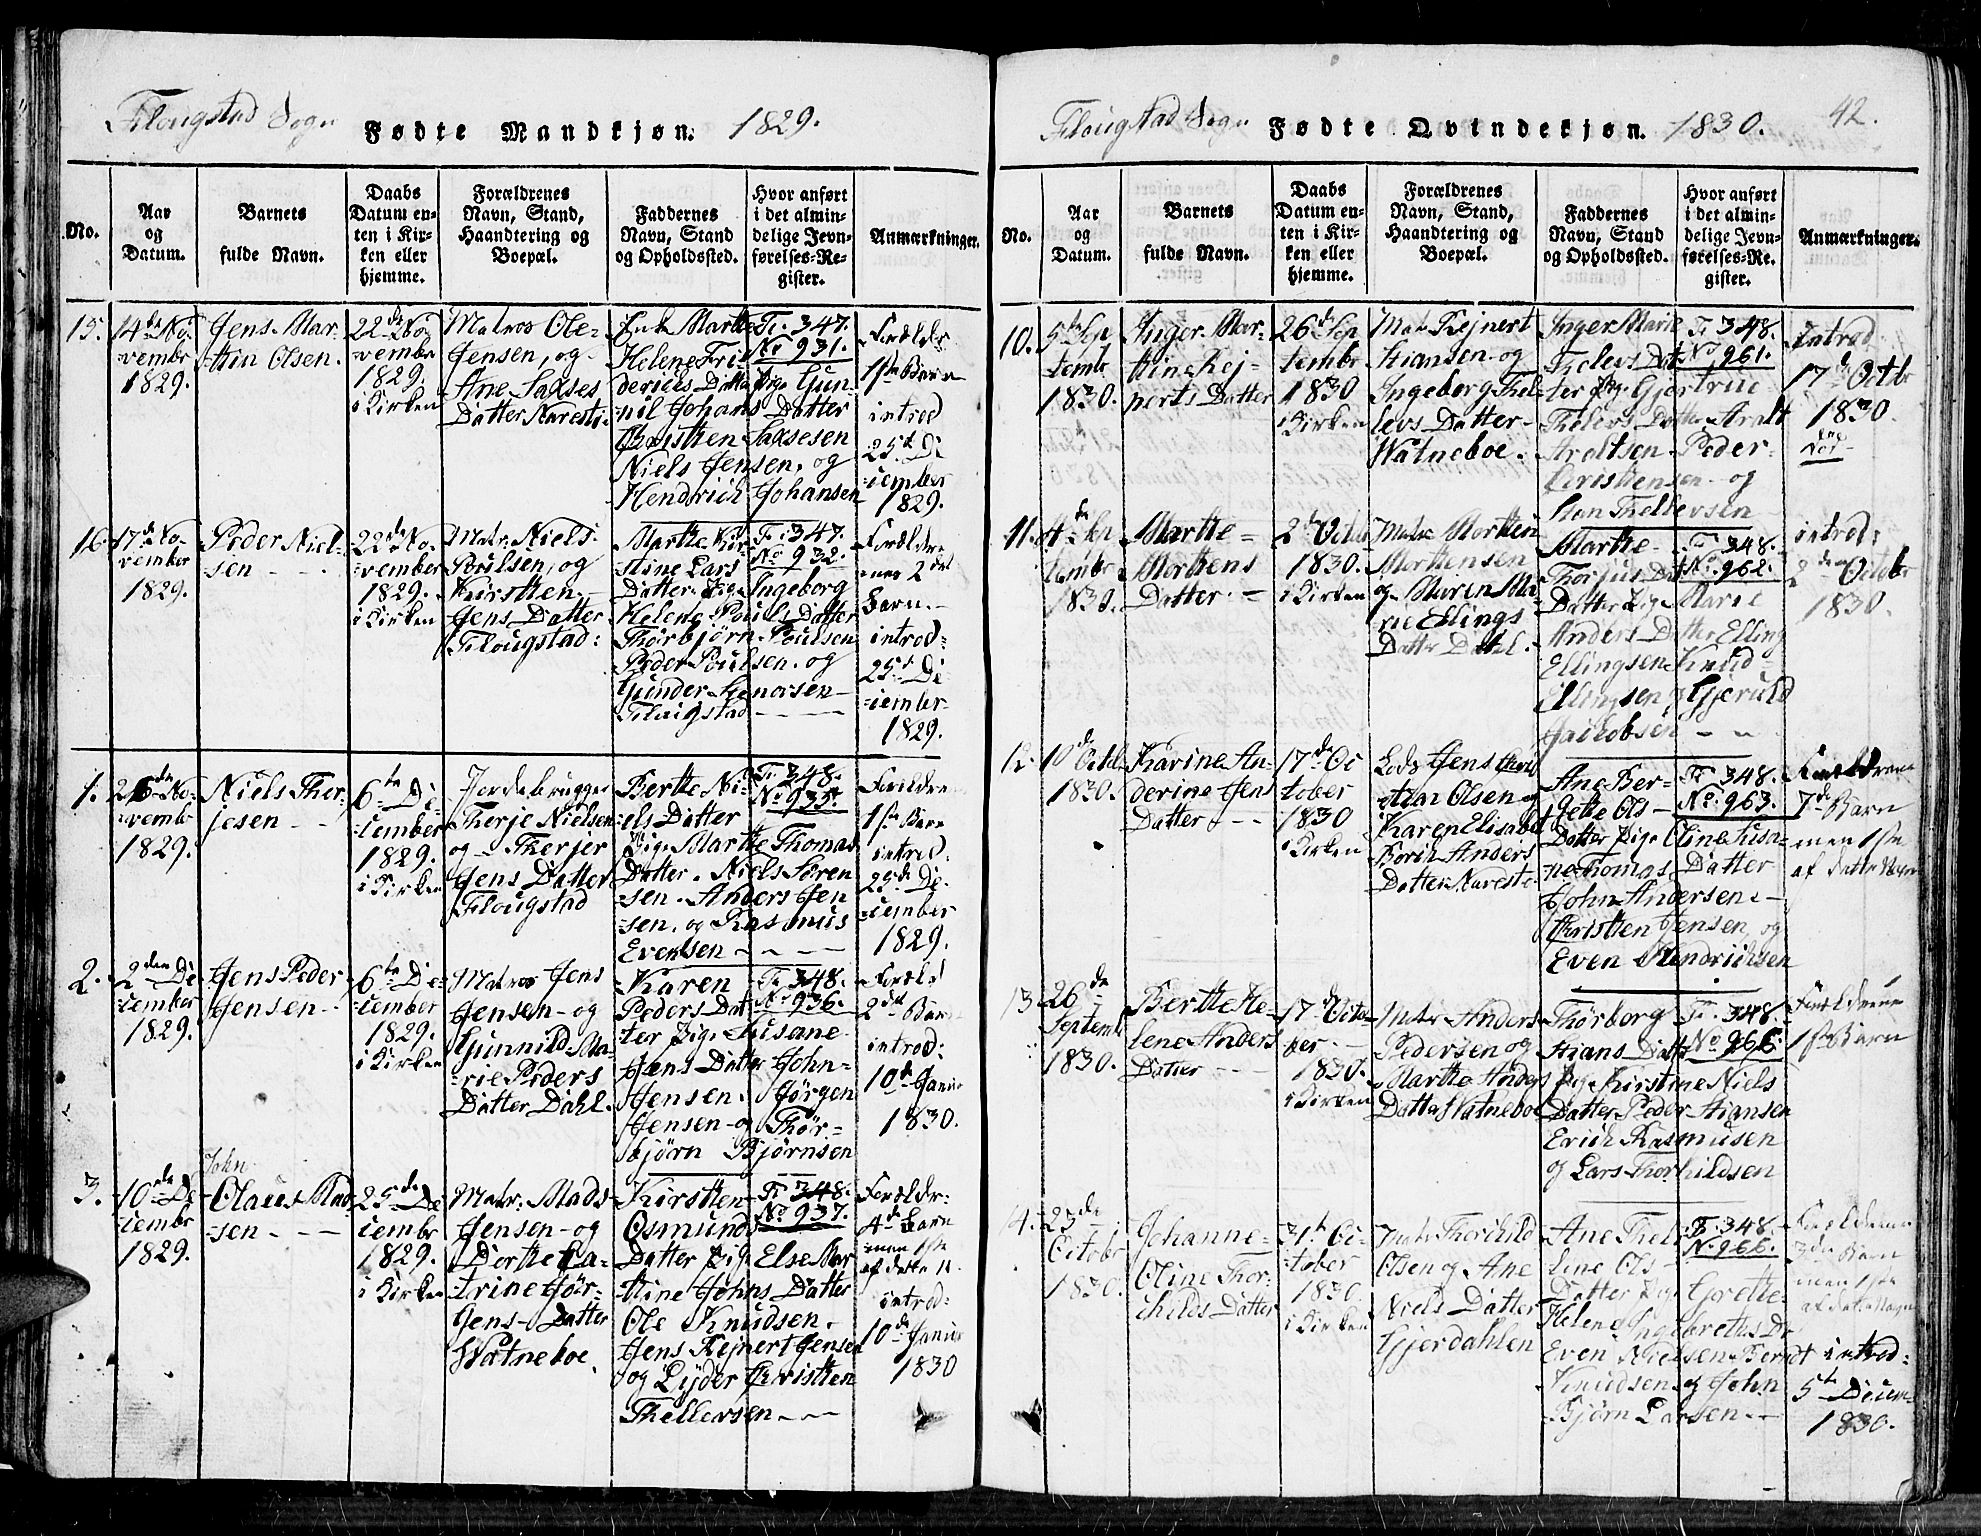 Flougstad Sogn
Fødte Mandkjøn. 1829.
No.
Aar og Datum.
Barnets fulde Navn.
Daabs Datum enten i Kirken eller hjemme.
Forældrenes Navn, Stand, Haandtering og Boepæl.
Faddernes Navn, Stand og Opholdssted.
Hvor anført i det almindelige Jevnførelses-Register.
Anmærkninger.
15.
14de No-
vembr
1829.
Jens Mar-
thin Olsen.
22de No
vembr
1829.
i Kirken
Matros Ole
Jensen, og
Ane Saxses
Datter Naresti.
Enk. Marthe
Helene Fri-
derichs Datter Pige Gun-
nil Johans Datter
Christen Saxsesen
Niels Jensen, og
Hendrich Johansen
Fi: 347.
No 931.
Forældr
1ste Barn
introd
25d De
cember
1829.
16
17de No-
vember
1829.
Peder Niel-
sen
22de No-
vember
1829.
i Kirken
Matr. Niels
Poulsen, og
Kirstten
Jens Datter
Flougstad:
Marthe Kir-
stine Lars
Datter Pige Ingeborg
Helene Pouls Datter
Thorbjørn Poulsen
Peder Poulsen. og
Gunder
Flougstad
Fi: 347.
No 932.
Forældre
nes 2det
Barn.
introd:
25d De
cember
1829.
1.
26de No-
vembr
1829.
Niels Ther-
jesen
6te De-
cember
1829.
i Kirken
Jordebrugger
Therje Nielsen
og Therjer
Jens Datter
Flougstad
Berthe Ni-
els Datter
Pige Marthe Thomas
Datter. Niels Sören
sen. Anders Jen
sen, og Rasmus
Evensen
Fi: 348.
No 935.
Forældre
1ste Barn
introd:
25de De-
cember
1829.
2.
2den De
cember
1829.
Jens Peder
Jensen
6te De-
cember
1829.
i Kirken
Matros Jens
Jensen og
Gunnild Ma-
rie Peders
Datter Dahl.
Karen
Peders Dat
ter Pige Susane
Jens Datter John
Jensen. Jørgen
Jensen og Thor-
bjørn Bjørnsen
Fi: 348.
No 936.
Foræld
2det Barn
introd:
10de Janur
1830.
3.
10de De
cembr
1829.
John
Olaus Mad-
sen
25de De
cembr
1829.
i Kirken
Matr: Mads
Jensen og
Dorthe Ca-
trine Jör-
gens Datter
Watneboe.
Kirstten
Osmunds
Datter Pige Else Mar
thine Johns Datter
Ole Knudsen.
Jens Rejnert Jensen
og Lyder Christten
Thellevsen
Fi: 348.
No 937.
Forældr:
4de Barn
men 1ste
af dette N.
introd:
10de Janur
1830
Flougstad Sogn
Fødte Qvindekjøn. 1830.
42.
No.
Aar og Datum.
Barnets fulde Navn.
Daabs Datum enten i Kirken eller hjemme.
Forældrenes Navn, Stand, Haandtering og Boepæl.
Faddernes Navn, Stand og Opholdssted.
Hvor anført i det almindelige Jevnførelses-Register.
Anmærkninger.
10.
5te Sep
tembr
1830.
Inger Mar-
thine Rej-
nerts Datter
26de Sep
tembr
1830
i Kirken
Matr Rejnert
Stiansen og
Ingeborg Thel-
levs Datter
Watneboe.
Inger Marie
Thelevs Dat
ter Pige Gjertrue
Thelevs Datter Aralt
Araltsen Peder
Christensen og
Stian Thellevsen
Fi: 348.
No 961.
Introd
17de Octbr
1830.
11.
4de Sep
tembr
1830.
Marthe
Morthens
Datter
2de Octbr
1830.
i Kirken
Matr Morthen
Morthensen
og Maren Ma-
rie Ellings
Datter Dahl.
Marthe
Thorjus Dat
Datter Pige Marie
Anders Datter Elling
Ellingsen Knud
Ellingsen og Gjeruld
Jackobsen
Fi: 348.
No. 962.
introd:
2den Octbr
1830.
12.
10de Octbr
1830.
Karine An-
derine Jens
Datter
17de Oc
tober
1830
i Kirken
Lods Jens Chri
stian Olsen og
Karen Elisabet
Borich Anders
Datter Nareste
Ane Ber-
gette Ols
Datter Pige Oline Susa-
ne Tomas Datter
John Andersen.
Christten Jensen, og
Even Hendrichsen
Fi: 348.
No. 963.
Forældrene
7de Barn
men 1ste
af dette Navn
13
26de
Septembr
1830.
Berthe He-
lene Anders
Datter
17de Octo-
ber.
1830.
i Kirken
Matr Anders
Pedersen og
Marthe Anders
Datter Watneboe
Thorborg
Stians Datter
Pige Kirstine Niels
Datter Peder Stiansen
Erich Rasmusen
og Lars Thorkildsen
Fi: 348.
No 965.
Forældrene
1ste Barn
14.
23de
Octobr
1830.
Johanne
Oline Thor-
childs Datter
31te Oc-
tober
1830.
i Kirken
Matr Thorchild
Olsen og Ane
Niels Datter
Gjerdahlen
Ane Thel
line Ols
Datter Pige Grethe
Helene Ingebreths Dr
Even Nielsen Berndt
Knudsen og John
Bjørn Larsen
Fi: 348.
No. 966.
Forældrene
3de Barn
men 1ste
af dette Nagn
introd:
5te Decem
1830.